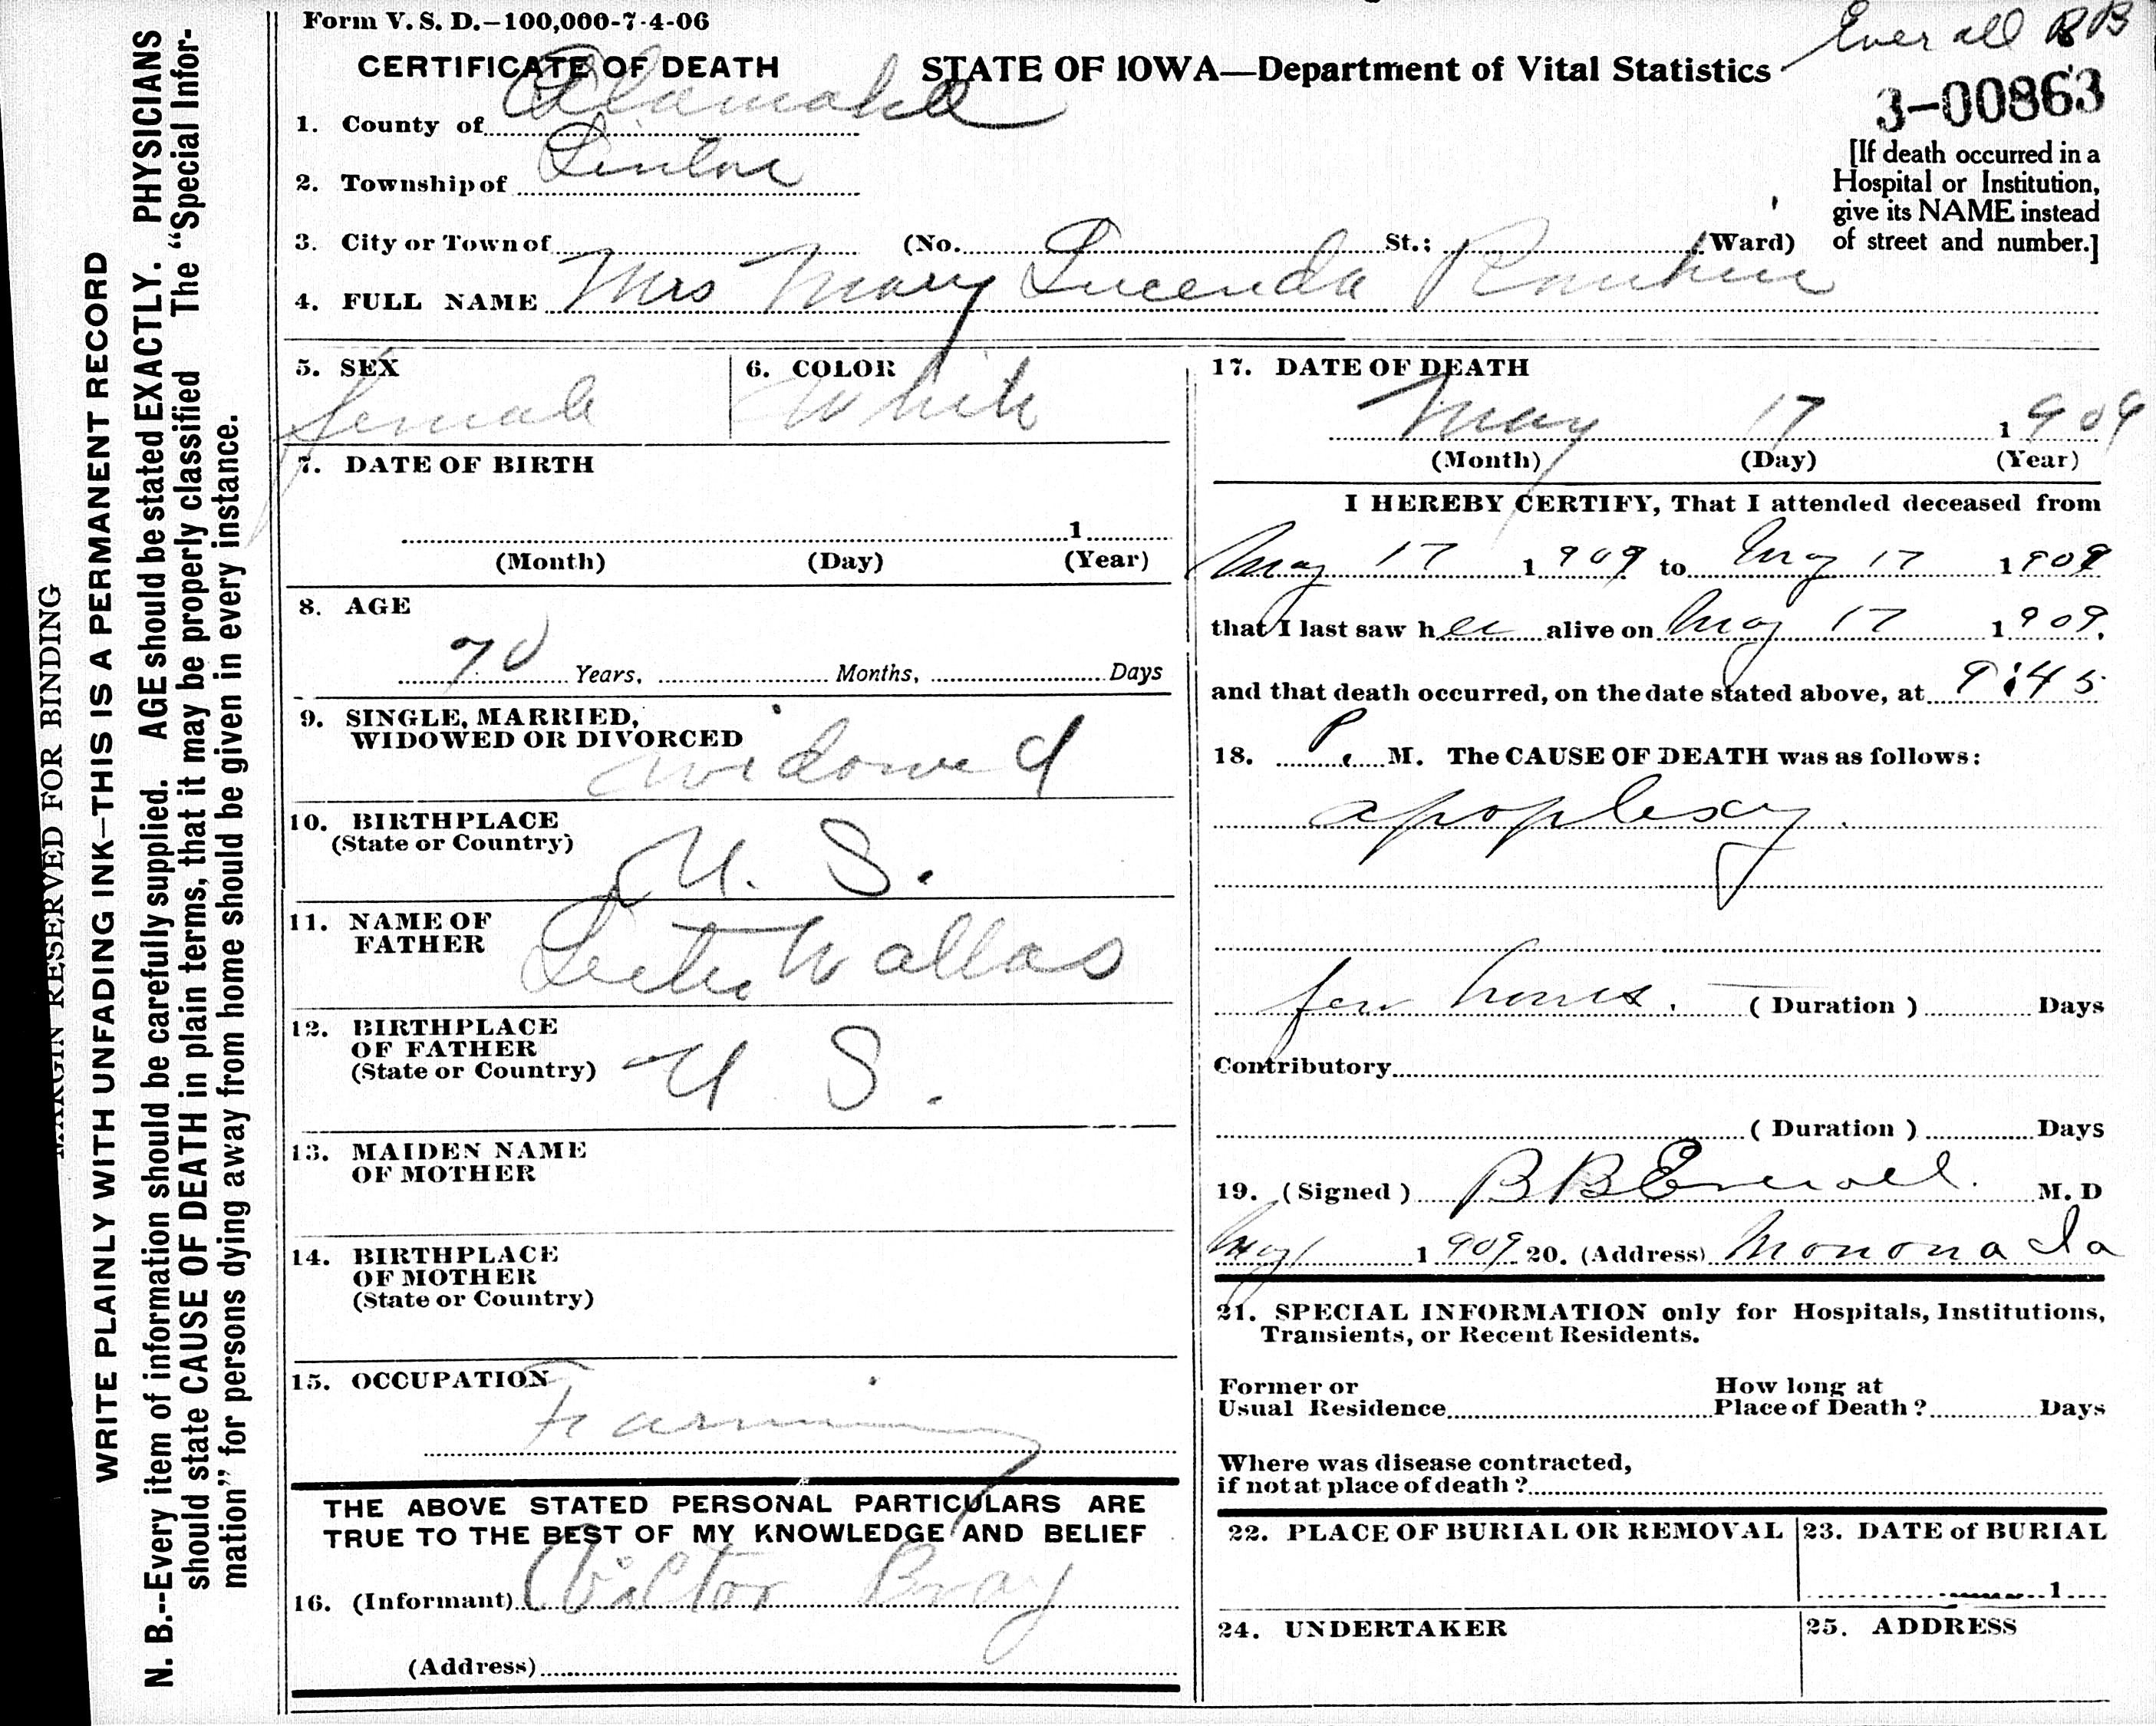 Form V. S. D.–100,000-7-4-06
Everall BB
CERTIFICATE OF DEATH STATE OF IOWA—Department of Vital Statistics
3-00863
[If death occurred in a Hospital or Institution, give its NAME instead of street and number.]
1. County of Alamakee
2. Township of Linton
3. City or Town of (No. St.; Ward)
4. FULL NAME Mrs Mary Lucenda
5. SEX female
6. COLOR White
7. DATE OF BIRTH
1
(Month) (Day) (Year)
8. AGE
70 Years, Months, Days
9. SINGLE, MARRIED,
WIDOWED OR DIVORCED widowed
10. BIRTHPLACE
(State or Country) U. S.
11. NAME OF
FATHER Wallas
12. BIRTHPLACE
OF FATHER
(State or Country) U S.
13. MAIDEN NAME
OF MOTHER
14. BIRTHPLACE
OF MOTHER
(State or Country)
15. OCCUPATION
Farming
THE ABOVE STATED PERSONAL PARTICULARS ARE
TRUE TO THE BEST OF MY KNOWLEDGE AND BELIEF
16. (Informant) Victor Bray
(Address)
17. DATE OF DEATH
May 17 1909
(Month) (Day) (Year)
I HEREBY CERTIFY, That I attended deceased from
May 17 1909 to May 17 1909
that I last saw her alive on May 17 1909.
and that death occurred, on the date stated above, at 9:45
18. P. M. The CAUSE OF DEATH was as follows:
apoplexy.
few hours. (Duration) Days
Contributory
(Duration) Days
19. (Signed) BB Everall. M. D
May 1909 20. (Address) Monona Ia
21. SPECIAL INFORMATION only for Hospitals, Institutions,
Transients, or Recent Residents.
Former or
Usual Residence
How long at
Place of Death? Days
Where was disease contracted,
if not at place of death?
22. PLACE OF BURIAL OR REMOVAL
23. DATE of BURIAL
1
24. UNDERTAKER
25. ADDRESS
MARGIN RESERVED FOR BINDING
WRITE PLAINLY WITH UNFADING INK—THIS IS A PERMANENT RECORD
N. B.--Every item of information should be carefully supplied. AGE should be stated EXACTLY. PHYSICIANS
should state CAUSE OF DEATH in plain terms, that it may be properly classified The "Special Infor-
mation" for persons dying away from home should be given in every instance.